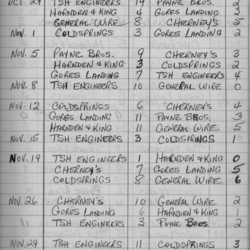 OCT. 29 TSH ENGINEERS 14 PAYNE BROS. 2
HARNDEN & KING 4 GORES LANDING 2
GENERAL WIRE 8 CHERNEY'S 5
NOV. 1 COLDSPRINGS 3 GORES LANDING 2
NOV. 5 PAYNE BROS. 9 CHERNEY'S 3
HARNDEN & KING 3 COLDSPRINGS 2
GORES LANDING 7 TSH ENGINEERS 4
NOV. 8 TSH ENGINEERS 10 GENERAL WIRE 0
NOV. 12 COLDSPRINGS 6 CHERNEY'S 4
GORES LANDING 11 PAYNE BROS. 3
HARNDEN & KING 11 GENERAL WIRE 5
NOV. 15 TSH ENGINEERS 3 COLDSPRINGS 1
NOV. 19 TSH ENGINEERS 1 HARNDEN & KING 0
CHERNEY'S 7 GORES LANDING 5
COLDSPRINGS 8 GENERAL WIRE 6
NOV. 26 CHERNEY'S 10 GENERAL WIRE 2
GORES LANDING 6 HARNDEN & KING 1
TSH ENGINEERS 3 PAYNE BROS 2
NOV. 29 TSH ENGINEERS 11 COLDSPRINGS